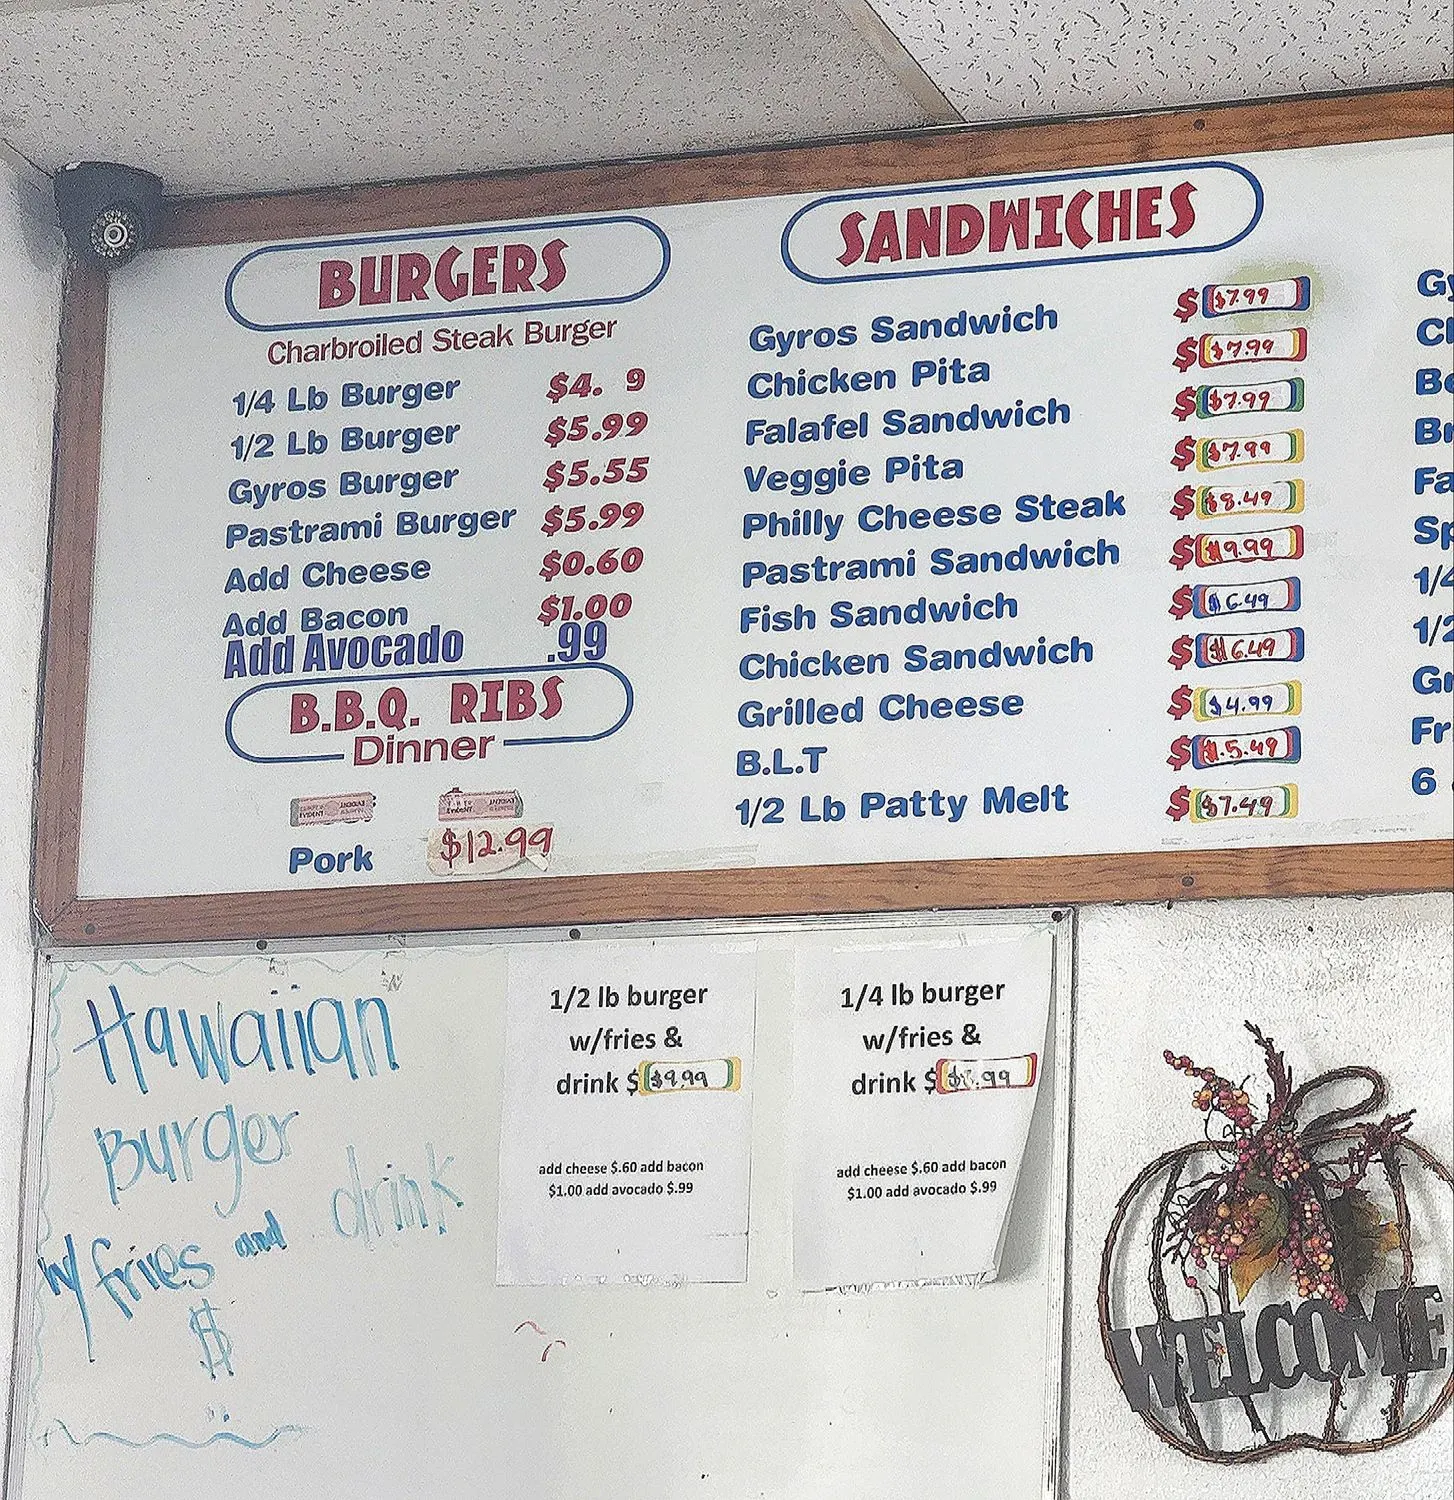 BURGERS
Charbroiled Steak Burger
1/4 Lb Burger $4. 9
1/2 Lb Burger $5.99
Gyros Burger $5.55
Pastrami Burger $5.99
Add Cheese $0.60
Add Bacon $1.00
Add Avocado .99
B.B.Q. RIBS
Dinner
Pork $12.99
SANDWICHES
Gyros Sandwich $ $7.99
Chicken Pita $ $7.99
Falafel Sandwich $ $7.99
Veggie Pita $ $7.99
Philly Cheese Steak $ $8.49
Pastrami Sandwich $ $9.99
Fish Sandwich $ $6.49
Chicken Sandwich $ $6.49
Grilled Cheese $ $4.99
B.L.T $ $.5.49
1/2 Lb Patty Melt $ $7.49
Gy
Ch
Be
Br
Fa
Sp
1/4
1/2
Gr
Fr
6
Hawaiian
Burger
w/ fries and drink
$
1/2 lb burger
w/fries &
drink $ $9.99
add cheese $.60 add bacon
$1.00 add avocado $.99
1/4 lb burger
w/fries &
drink $
add cheese $.60 add bacon
$1.00 add avocado $.99
WELCOME